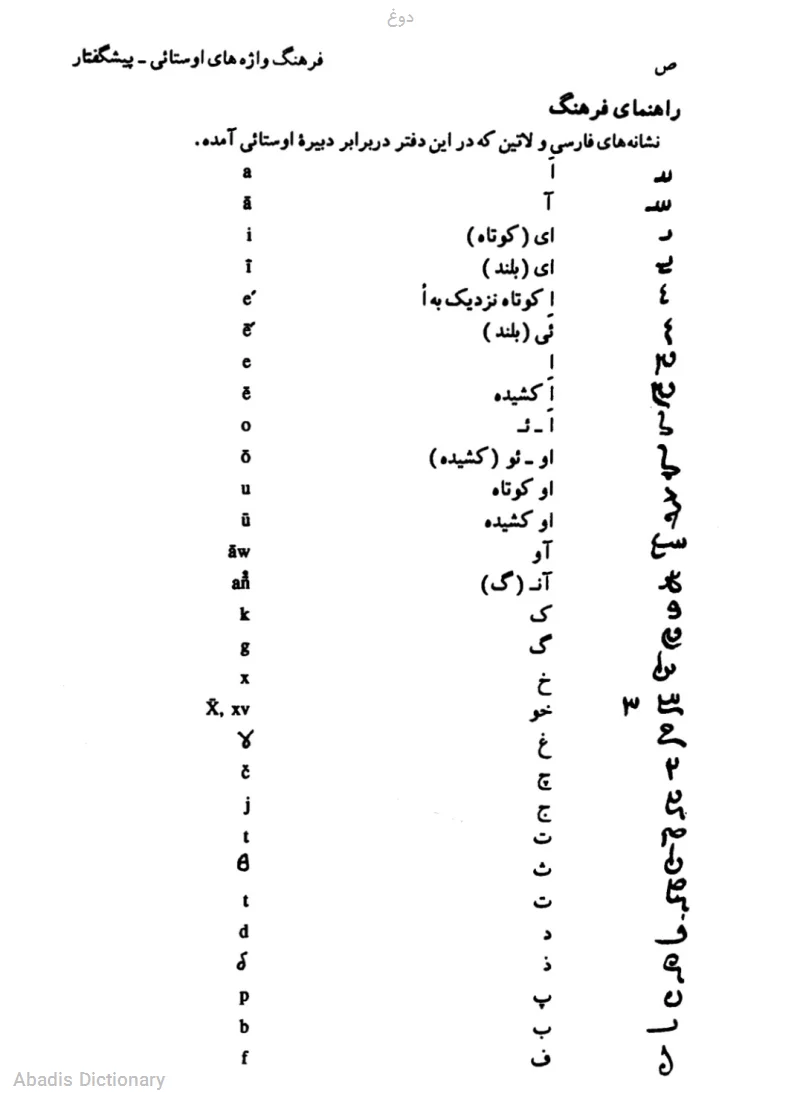 دوغ
ص فرهنگ واژه‌های اوستائی ـ پیشگفتار
راهنمای فرهنگ
نشانه‌های فارسی و لاتین که در این دفتر دربرابر دبیرهٔ اوستائی آمده.
اَ a
آ ā
ای (کوتاه) i
ای (بلند) ī
اِ کوتاه نزدیک به اُ é
ئی (بلند)
ا e
اَ کشیده ē
اُ ـ ئـ o
او ـ ئو (کشیده) ō
او کوتاه u
او کشیده ū
آو āw
آنـ (گ)
ک k
گ g
خ x
خو X̄, xv
غ ɣ
چ č
ج j
ت t
ث θ
ت t
د d
ذ δ
پ p
ب b
ف f
Abadis Dictionary